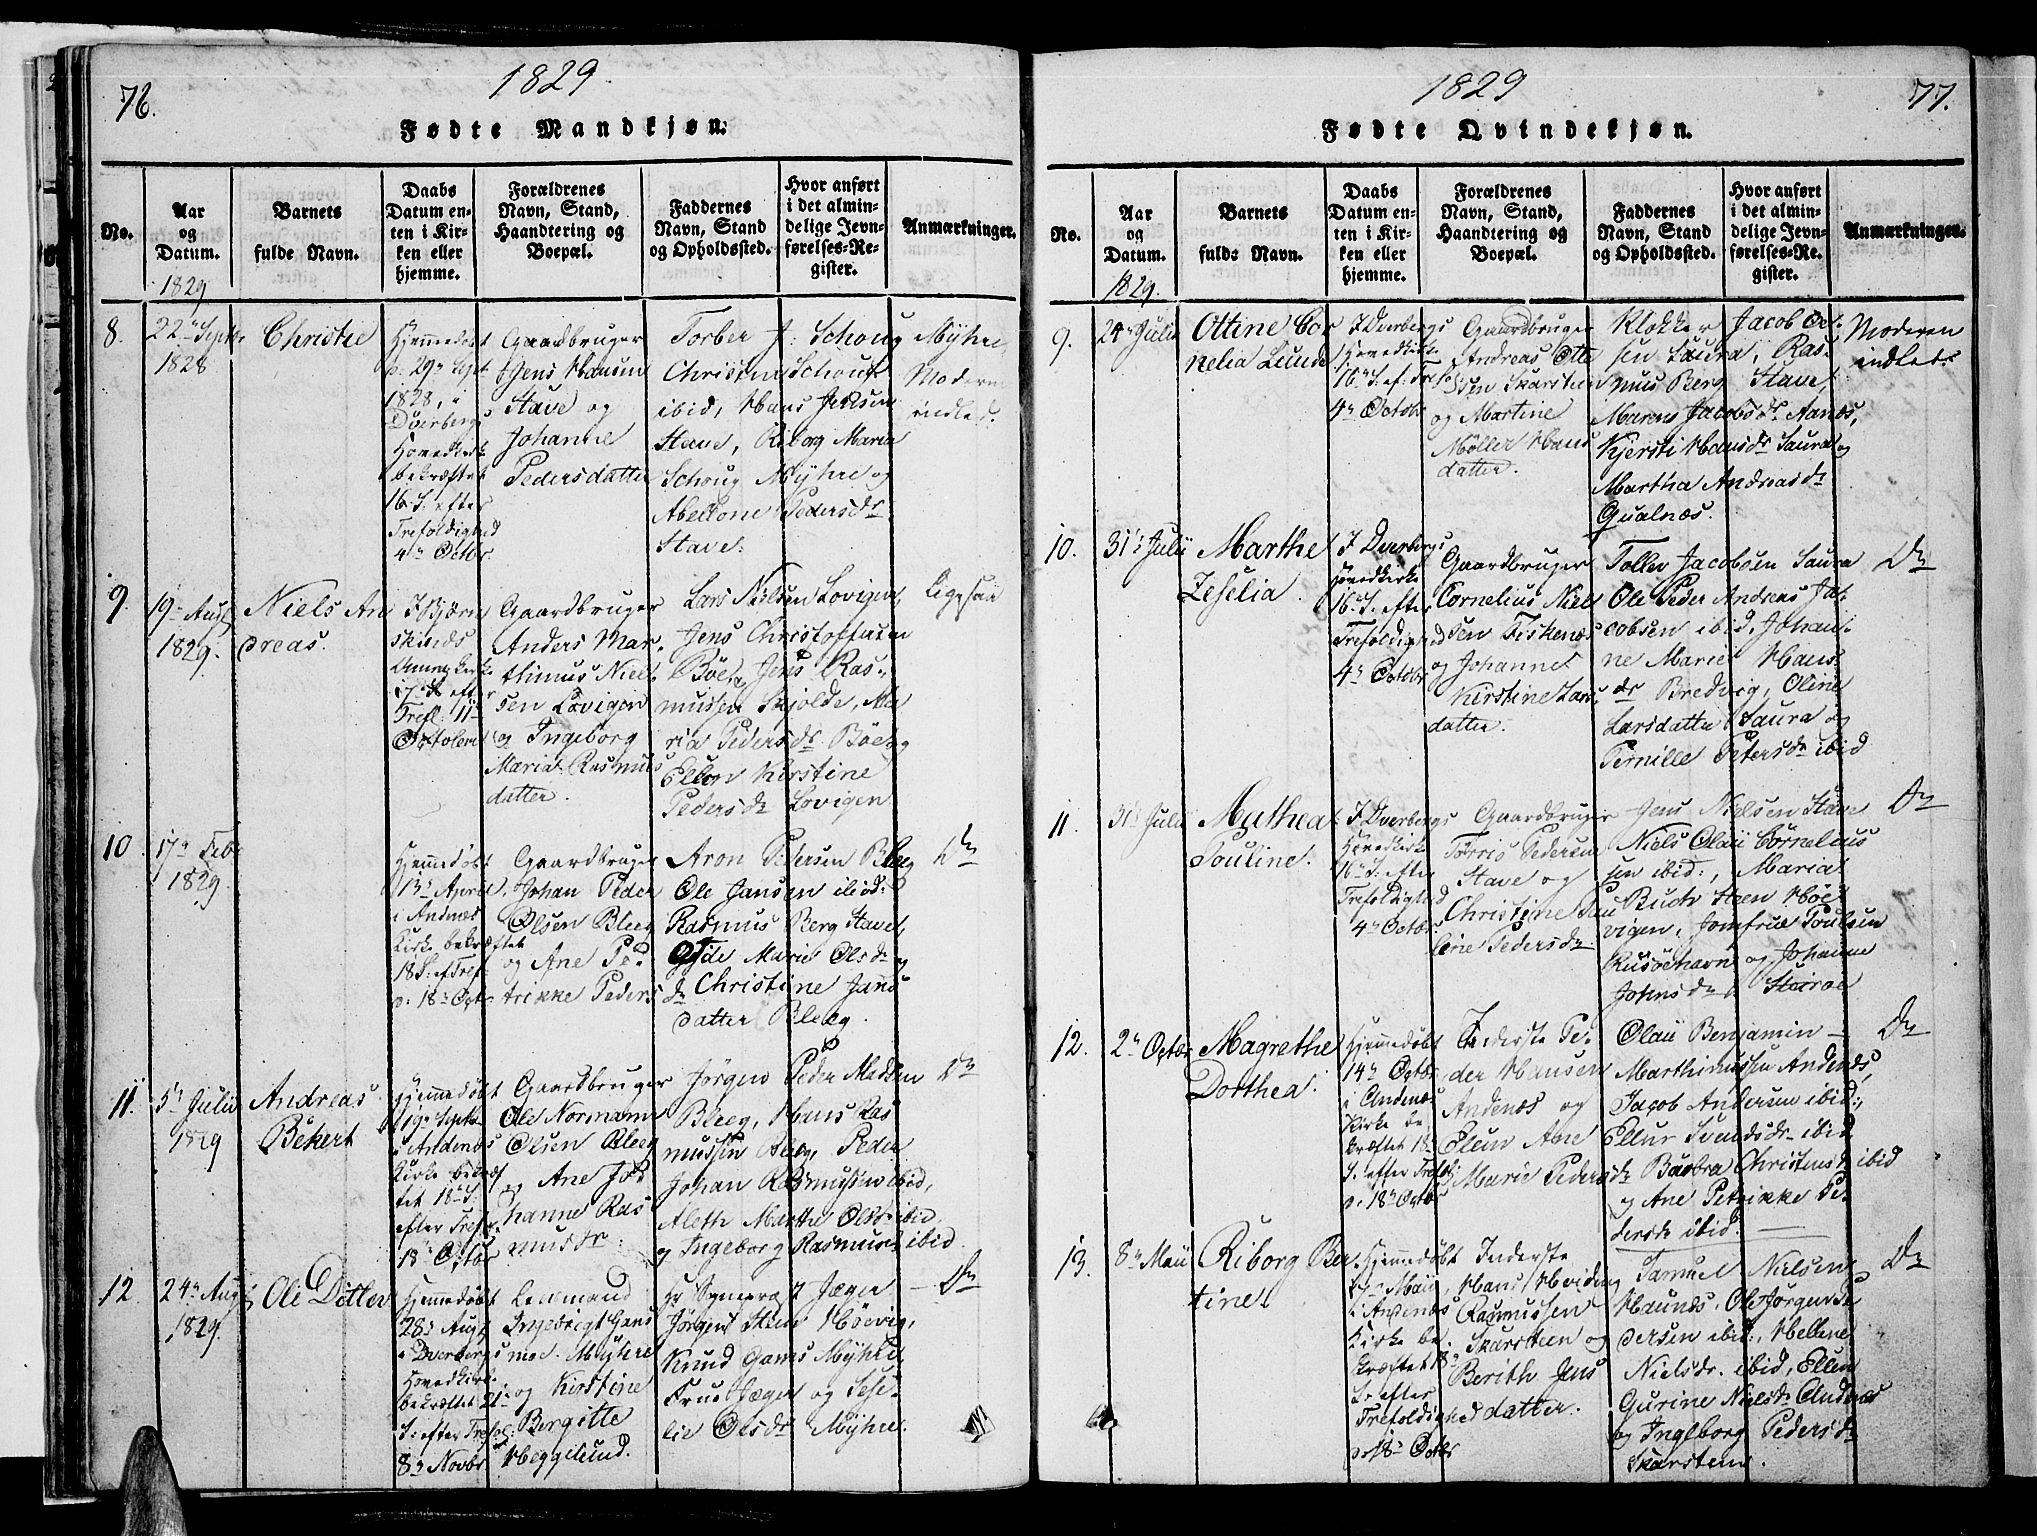 76.
1829.
Fødte Mandkjøn.
No.
Aar
og
Datum.
Barnets
fulde Navn.
Daabs
Datum en-
ten i Kir-
ken eller
hjemme.
Forældrenes
Navn, Stand,
Haandtering og
Boepæl.
Faddernes
Navn, Stand
og Opholdssted.
Hvor anført
i det almin-
delige Jevn-
førelses-Re-
gister.
Anmærkninger.
1829
8.
22de Septbr
1828
Christie
Hjemmedøbt
d. 29de Sept.
1828, i
Dverbergs
Hovedkirk
bekræftet
16 S: efter
Trefoldighed
4de Octbr.
Gaardbruger
Jens Hansen
Stave og
Johanne
Pedersdatter
Torber J: Schoug
Christen Schoug
ibid, Hans Jensen
Stave, Riborg Maria
Schoug Myhre og
Abellone Pedersdr
Stave.
Myhre,
Moderen
indled.
9.
19de Aug
1829.
Niels An
dreas.
I Bjørn
skinds
Annex kirke
17 S efter
Trefl. 11te
Octobr
Gaardbruger
Anders Mar-
thinus Niel-
sen Lovigen
og Ingeborg
Maria Rasmus
datter.
Lars Nielsen Lovigen
Jens Christoffersen
Böe, Jens Ras-
mussen Skjolde, Ma
ria Pedersdr Böe og
Ellen Kirstine
Pedersdr Lovigen
Ligesaa
10.
17de Feb
1829.
Hjemmedøbt
13de April
i Andnæs
Kirke bekræftet
18 S: ef Tref
d. 18de Octr
Gaardbruger
Johan Peder
Olsen Bleeg
og Ane Pe-
trikke Peders
dr
Aron Pedersen Bleeg
Ole Jansen ibid:
Rasmus Berg Stave,
Marie Olsdr
Christine Jans
datter Bleeg.
Do
11.
5te Julii
1829
Andreas
Bekert
Hjemmedøbt
19de Septbr
i Andenæs
Kirke bekræf
tet 18de S:
efter Tref
18de Octbr
Gaardbruger
Ole Normann
Olsen Bleeg
og Ane Jo
hanne Ras
musdr
Jörgen Peder Madsen
Bleeg, Hans Ras
mussen Bleeg, Peder
Johan Rasmussen ibid,
Aleth Marthe Olsdr ibid,
og Ingeborg Rasmusdr ibid
Do
12.
24de Aug
1829.
Ole Detlev
Hjemmedøbt
28de Aug
i Dverbergs
Hovedkirk
bekræftet 21de
S: efter Trefol:
8de Novbr
Lensmand
Ingebrigt Hans
Myhre
og Kirstine
Bergitte
Heggelund.
Hr Jæger
Jörgen Steen Höevig,
Knud Gams Myhre,
Frue Jæger og Sese-
lie Olsdr Myhre.
Do
1829
77.
Fødte Qvindekjøn.
No.
Aar
og
Datum.
Barnets
fulde Navn.
Daabs
Datum en-
ten i Kir-
ken eller
hjemme.
Forældrenes
Navn, Stand,
Haandtering og
Boepæl.
Faddernes
Navn, Stand
og Opholdssted.
Hvor anført
i det almin-
delige Jevn-
førelses-Re-
gister.
Anmærkninger.
1829.
9.
24de Julii
Ottine Cor
nelia Lunde
I Dverbergs
Hovedkirke
16de S. ef. Trefo
4de Octobr
Gaardbruger
Andreas Otte
sen Skarstein
og Martine
Møller Hans
datter.
Klokker Jacob Ol-
sen Saura, Ras-
mus Berg Stave,
Maren Jacobsdr Aanæs,
Kjersti Hansdr Saura og
Martha Andreasdr
Qualnæs.
Moderen
indledt
10.
31te Julii
Marthe
Zeselia.
I Dverbergs
Hovedkirke
16de S. efter
Trefoldighed
4de Octobr
Gaardbruger
Cornelius Niel
sen Fiskenæs
og Johanne
Kirstine Lars
datter.
Toller Jacobsen Saura
Ole Peder Andreas Ja-
cobsen ibid, Johan-
ne Marie Hans-
dr Bredvig, Oline
Larsdatter Saura og
Pernille Petersdr ibid
Do
11.
31te Julii
Mathea
Pouline.
I Dverbergs
Hovedkirk
16de S: efter
Trefoldighed
4de Octbr.
Gaardbruger
Tørris Pedersen
Stave og
Christine Pau
line Pedersdr
Jens Nielsen Stave
Niels Olaii Cornelius
sen ibid:, Maria
Buch Steen Höe
vigen, Jomfrue Poulsen
Risöehavn og Johanne
Johnsdr
Do
12.
2de Octbr
Magrethe
Dorthea.
Hjemmedøbt
14de Octbr
i Andenæs
Kirke be
kræftet 18
S. efter Trefol
d. 18de Octbr
Inderste Pe-
der Hansen
Andenæs og
Elen Ane
Marie Pedersdr
Olaii Benjamin
Marthinussen Andenæs,
Jacob Andersen ibid:,
Ellur Svendsdr ibid
Barbra Christensdr ibid
og Ane Petrikke Pe-
dersdr ibid.
Do
13.
8de Maii
Riborg Ber
tine
Hjemmedøbt
Maii
i Andenæs
Kirke be
kræftet 18de
S. efter
Trefoldighed
d. 18de Octbr
Inderste
Hans Hviding
Rasmussen
Skarstein og
Berith Jens
datter.
Samuel Nielsen
Haunæs, Ole Jörgen Pe
dersen ibid:, Helline
Nielsdr. ibid, Ellen
Gurine Nielsdr Andenæs
og Ingeborg Pedersdr
Skarstein.
Do